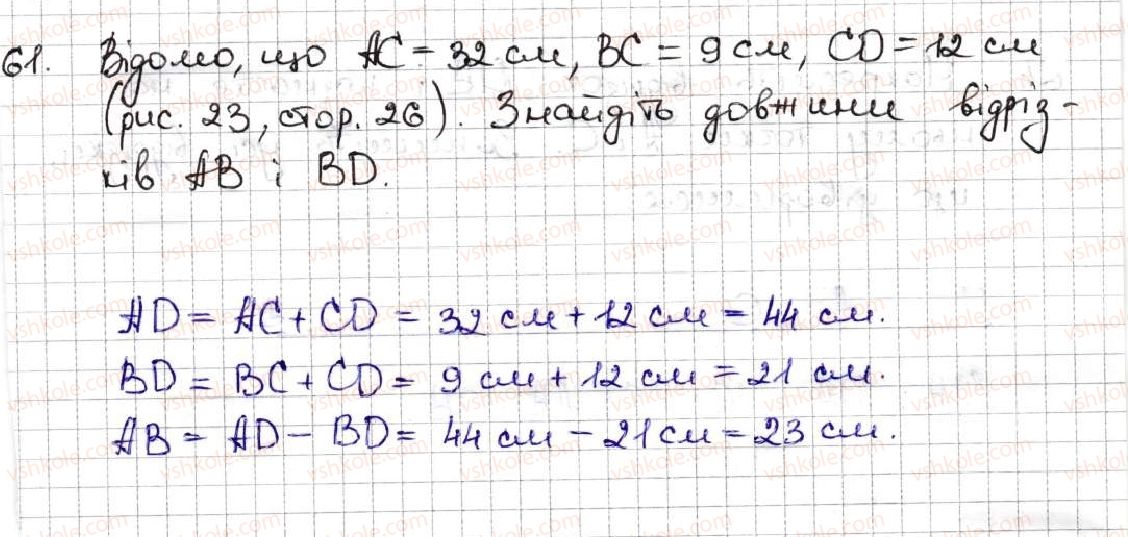 61. Відомо, що AC = 32 см, BC = 9 см, CD = 12 см
(рис. 23, стор. 26). Знайдіть довжини відріз-
ків AB і BD.
AD = AC + CD = 32 см + 12 см = 44 см.
BD = BC + CD = 9 см + 12 см = 21 см.
AB = AD - BD = 44 см - 21 см = 23 см.